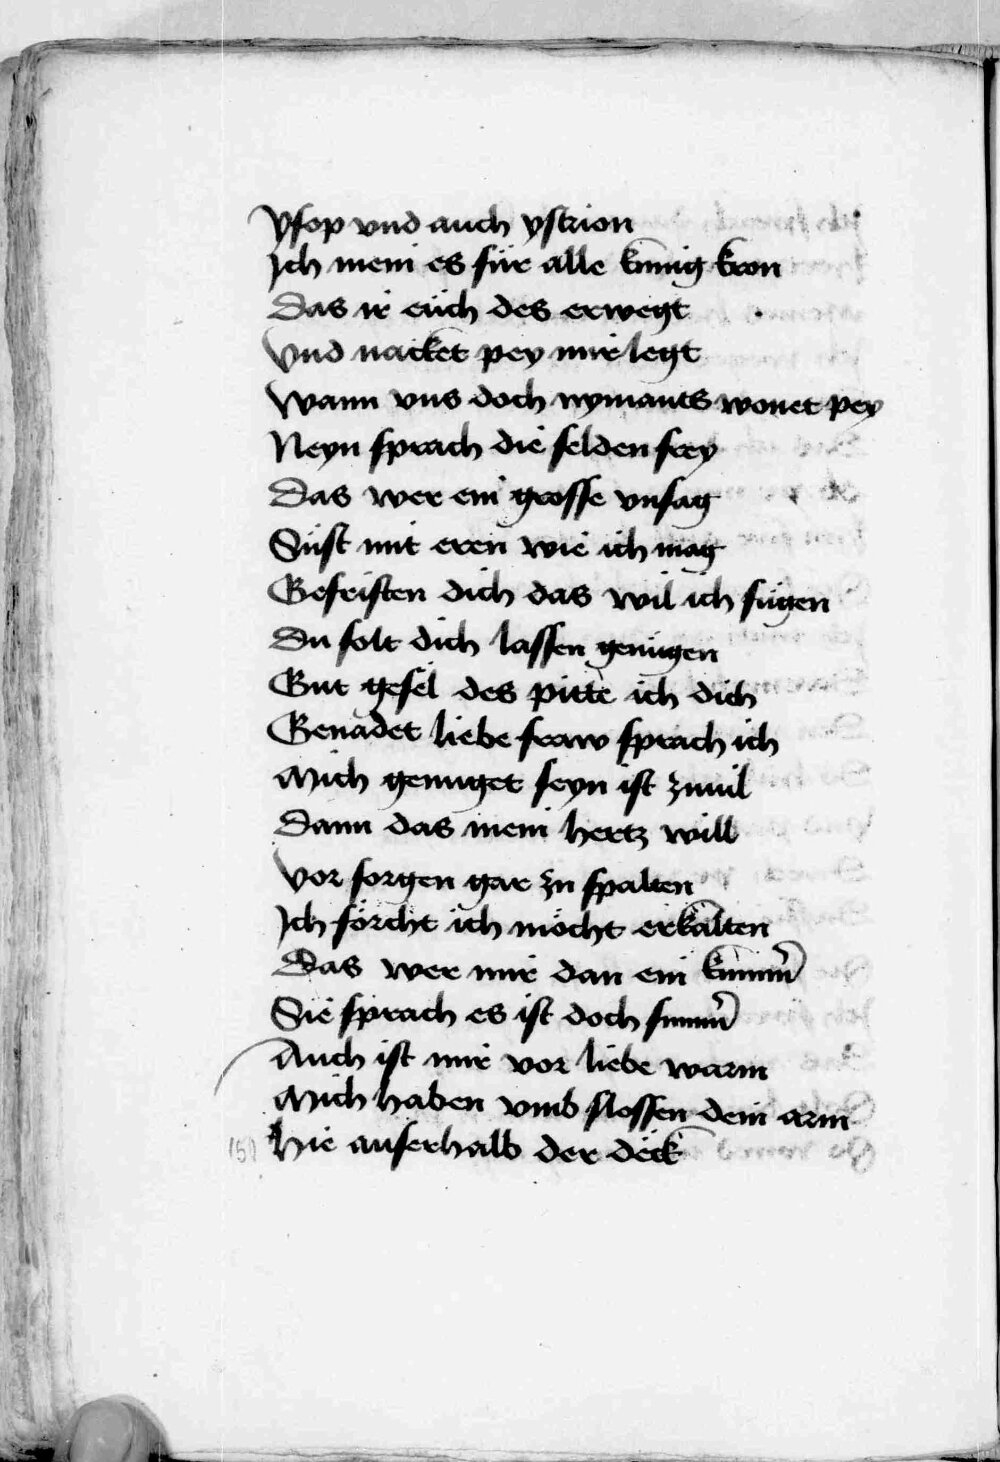 Ysop vnd auch ystrion
Ich mein es für alle künig kron
Das ir eüch des erwegt
Vnd nacket pey mir legt
Wann vns doch nymants wonet pey
Neyn sprach die selden frey
Das wer ein grosse vnsag
Süst mit eren wie ich mag
Gefristen dich das wil ich fügen
Du solt dich lassen genügen
Gut gesel des pitte ich dich
Genadet liebe fraw sprach ich
Mich genuget seyn ist zuuil
Dann das mein hertz will
Vor sorgen gar zu spalten
Ich förcht ich möcht erkalten
Das wer mir dan ein kumm̄
Sie sprach es ist doch summ̄
Auch ist mir vor liebe warm
Mich haben vmb slossen dein arm
Hie auserhalb der deck